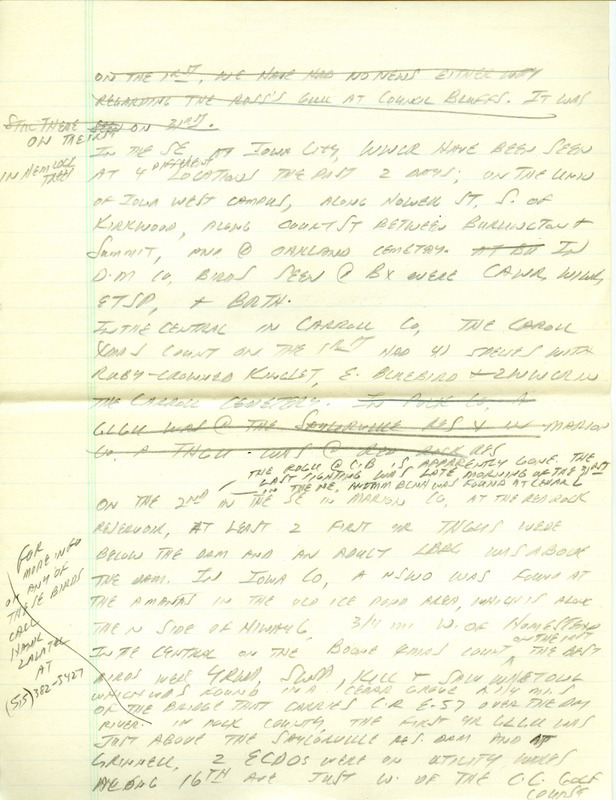 ON THE 1RST, WE HAVE HAD NO NEWS EITHER WAY
REGARDING THE ROSS'S GULL AT COUNCIL BLUFFS. IT WAS
STILL THERE SEEN ON 31RST.
ON THE 1RST
IN THE SE AT IOWA CITY, WWCR HAVE BEEN SEEN
IN HEMLOCK
TREES
AT 4 DIFFERENT LOCATIONS THE PAST 2 DAYS; ON THE UNIV
OF IOWA WEST CAMPUS, ALONG ST. S. OF
KIRKWOOD, ALONG COURT ST BETWEEN BURLINGTON +
SUMMIT, AND @ OAKLAND CEMETERY. IN
D.M CO, BIRDS SEEN @ WERE CAWR, WIWR,
ETSP, + BRTH.
IN THE CENTRAL IN CARROLL CO, THE CAROLL
XMAS COUNT ON THE 1RST HAD 41 SPECIES WITH
RUBY-CROWNED KINGLET, E. BLUEBIRD + 2 WWCR IN
THE CARROLL CEMETERY. IN POLK CO, A
GLGU WAS @ THE SAYLORVILLE RES + IN MARION
CO. A THGU WAS @ RED ROCK RES
THE ROGU @ C.B IS APPARENTLY GONE. THE
LAST SIGHTING WAS LATE MORNING OF THE 31RST
IN THE NE, AN IMM WAS FOUND AT
ON THE 2ND IN THE SE IN MARION CO, AT THE RED ROCK
RESERVOIR, AT LEAST 2 FIRST YR THGUS WERE
BELOW THE DAM AND AN ADULT LBBG WAS ABOVE
THE DAM. IN IOWA CO, A NSWO WAS FOUND AT
THE AMANAS IN THE OLD ICE POND AREA, WHICH IS ALONG
THE N SIDE OF HIWAY 6, 3/4 MI W. OF HOMESTEAD
IN THE CENTRAL ON THE BOONE XMAS COUNT ON THE 1RST THE BEST
BIRDS WERE YRWA, SWSP, KILL + SAW WHET OWL
WHICH WAS FOUND IN A CEDAR GROVE 1/4 MI S.
OF THE BRIDGE THAT CARRIES C.R E-57 OVER THE DM
RIVER. IN POLK COUNTY, THE FIRST YR GLGU WAS
JUST ABOVE THE SAYLORVILLE RES. DAM AND AT
GRINNELL, 2 ECDOS WERE ON UTILITY WIRES
ALONG 16TH AVE JUST W. OF THE C.C. GOLF
COURSE
FOR
MORE INFO
ON ANY OF
THESE BIRDS
CALL
HANK
ZALATEL
AT
(515) 382-5427